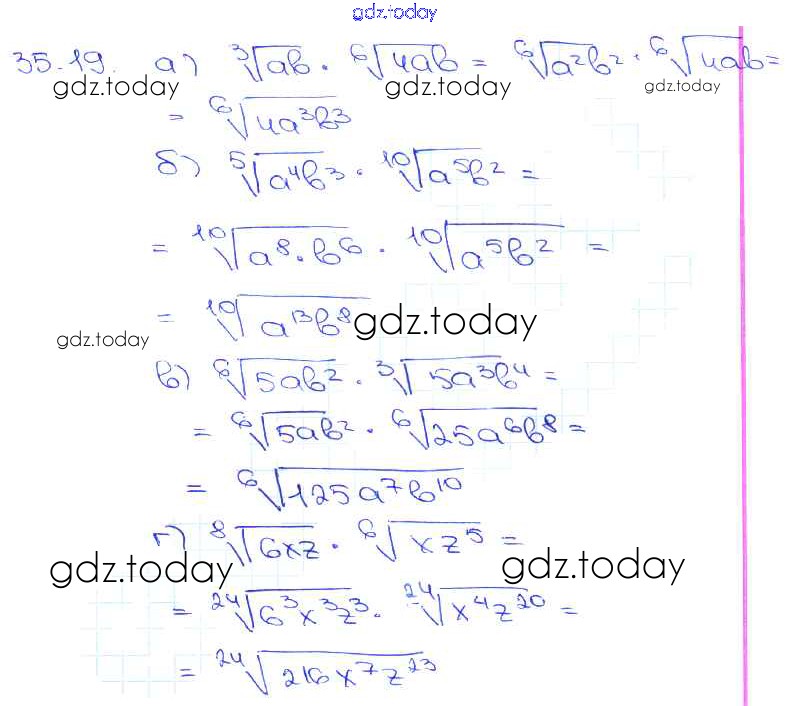 gdz.today
35.19. а) ∛(ab) · ⁶√(4ab) = ⁶√(a²b²) · ⁶√(4ab) =
gdz.today gdz.today gdz.today
= ⁶√(4a³b³)
б) ⁵√(a⁴b³) · ¹⁰√(a⁵b²) =
= ¹⁰√(a⁸·b⁶) · ¹⁰√(a⁵b²) =
= ¹⁰√(a¹³b⁸) gdz.today
gdz.today
в) ⁶√(5ab²) · ³√(5a³b⁴) =
= ⁶√(5ab²) · ⁶√(25a⁶b⁸) =
= ⁶√(125a⁷b¹⁰)
г) ⁸√(6xz) · ⁶√(xz⁵) =
gdz.today gdz.today
= ²⁴√(6³x³z³) · ²⁴√(x⁴z²⁰) =
= ²⁴√(216x⁷z²³)